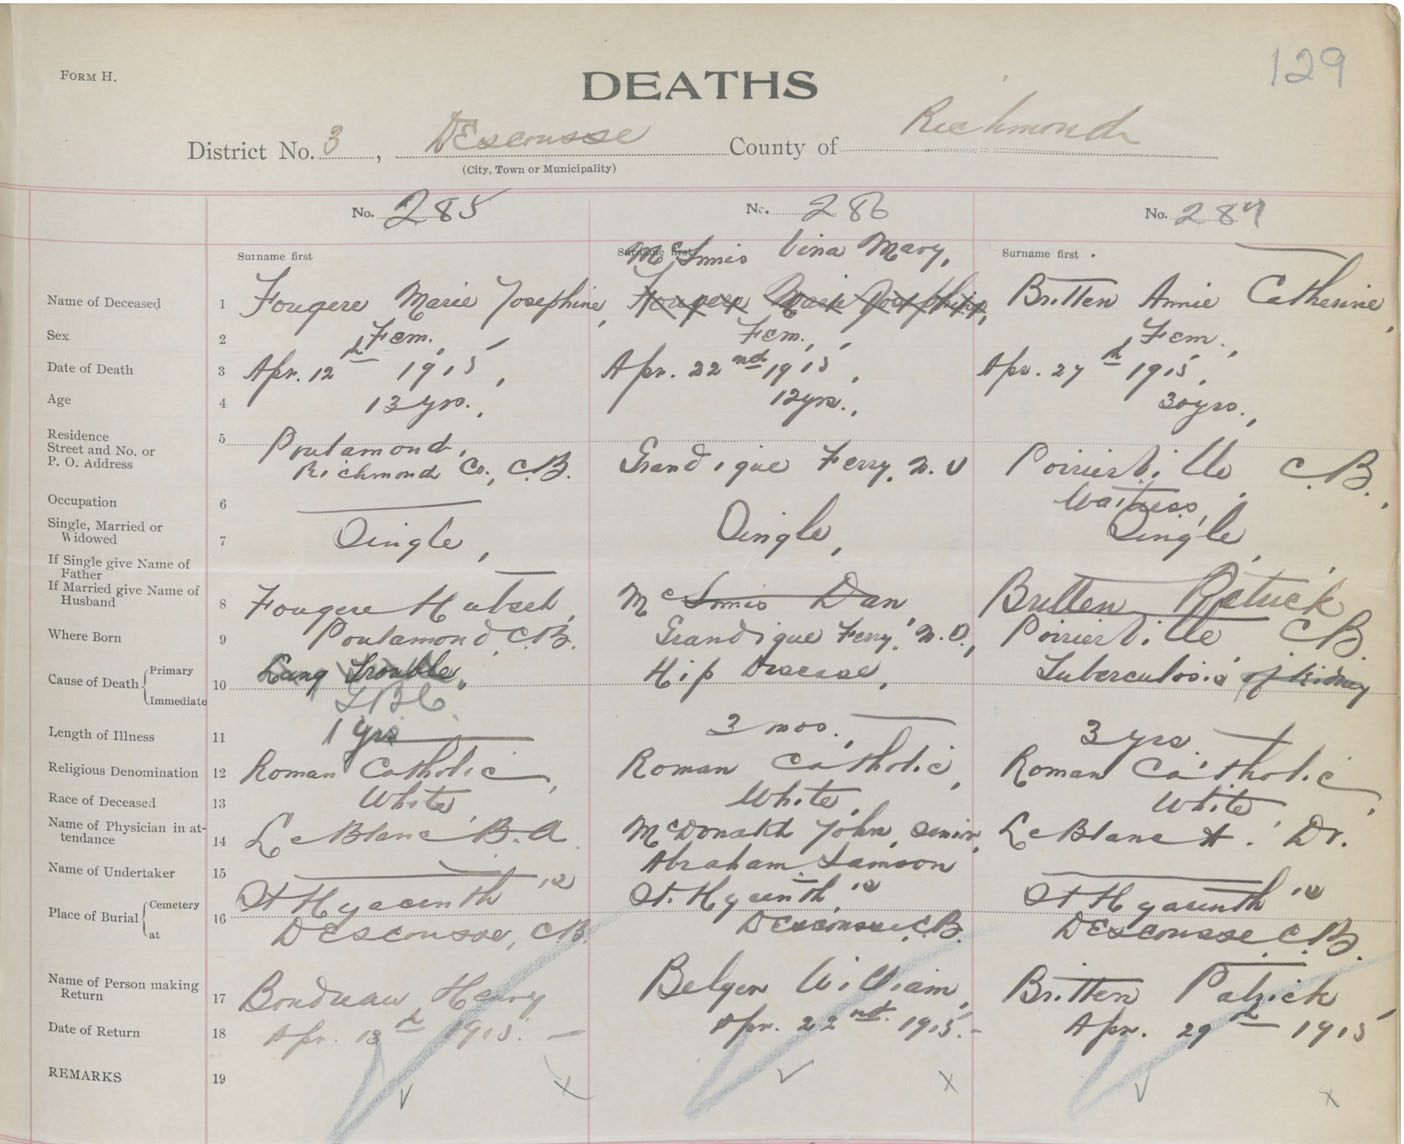 129
FORM H.
DEATHS
District No. 3, DEscousse County of Richmond
(City, Town or Municipality)
No. 285 No. 286 No. 287
Surname first Surname first Surname first
McInnis Vina Mary,
Name of Deceased 1 Fougere Marie Josephine, Fougere Marie Josephine, Britten Annie Catherine,
Sex 2 Fem., Fem., Fem.,
Date of Death 3 Apr. 12th 1915, Apr. 22nd 1915, Apr. 27th 1915,
Age 4 13 yrs., 12 yrs., 30 yrs.,
Residence
Street and No. or
P. O. Address
5 Poulamond, Richmond Co., C.B. Grandique Ferry, Poirierville C.B.,
Occupation 6 Waitress,
Single, Married or
Widowed
7 Single, Single, Single,
If Single give Name of
Father
If Married give Name of
Husband
8 Fougere McInnis Dan Britten Patrick
Where Born 9 Poulamond, C.B. Grandique Ferry, Poirierville, C.B.
Cause of Death { Primary Immediate
10 Lung Trouble, TBC Hip Disease, Tuberculosis of kidney
Length of Illness 11 1 yrs 3 mos., 3 yrs.
Religious Denomination 12 Roman Catholic, Roman Catholic, Roman Catholic,
Race of Deceased 13 White, White, White,
Name of Physician in attendance
14 LeBlanc B.A. McDonald John, Senior, LeBlanc A. Dr.
Name of Undertaker 15 Abraham Samson
Place of Burial { Cemetery at
16 St Hyacinth St. Hyacinth St Hyacinth
DEscousse, C.B. DEscousse, C.B. DEscousse C.B.
Name of Person making
Return
17 Boudreau Henry Belyea William, Britten Patrick
Date of Return 18 Apr. 13th 1915. Apr. 22nd. 1915. Apr. 29th 1915
REMARKS 19